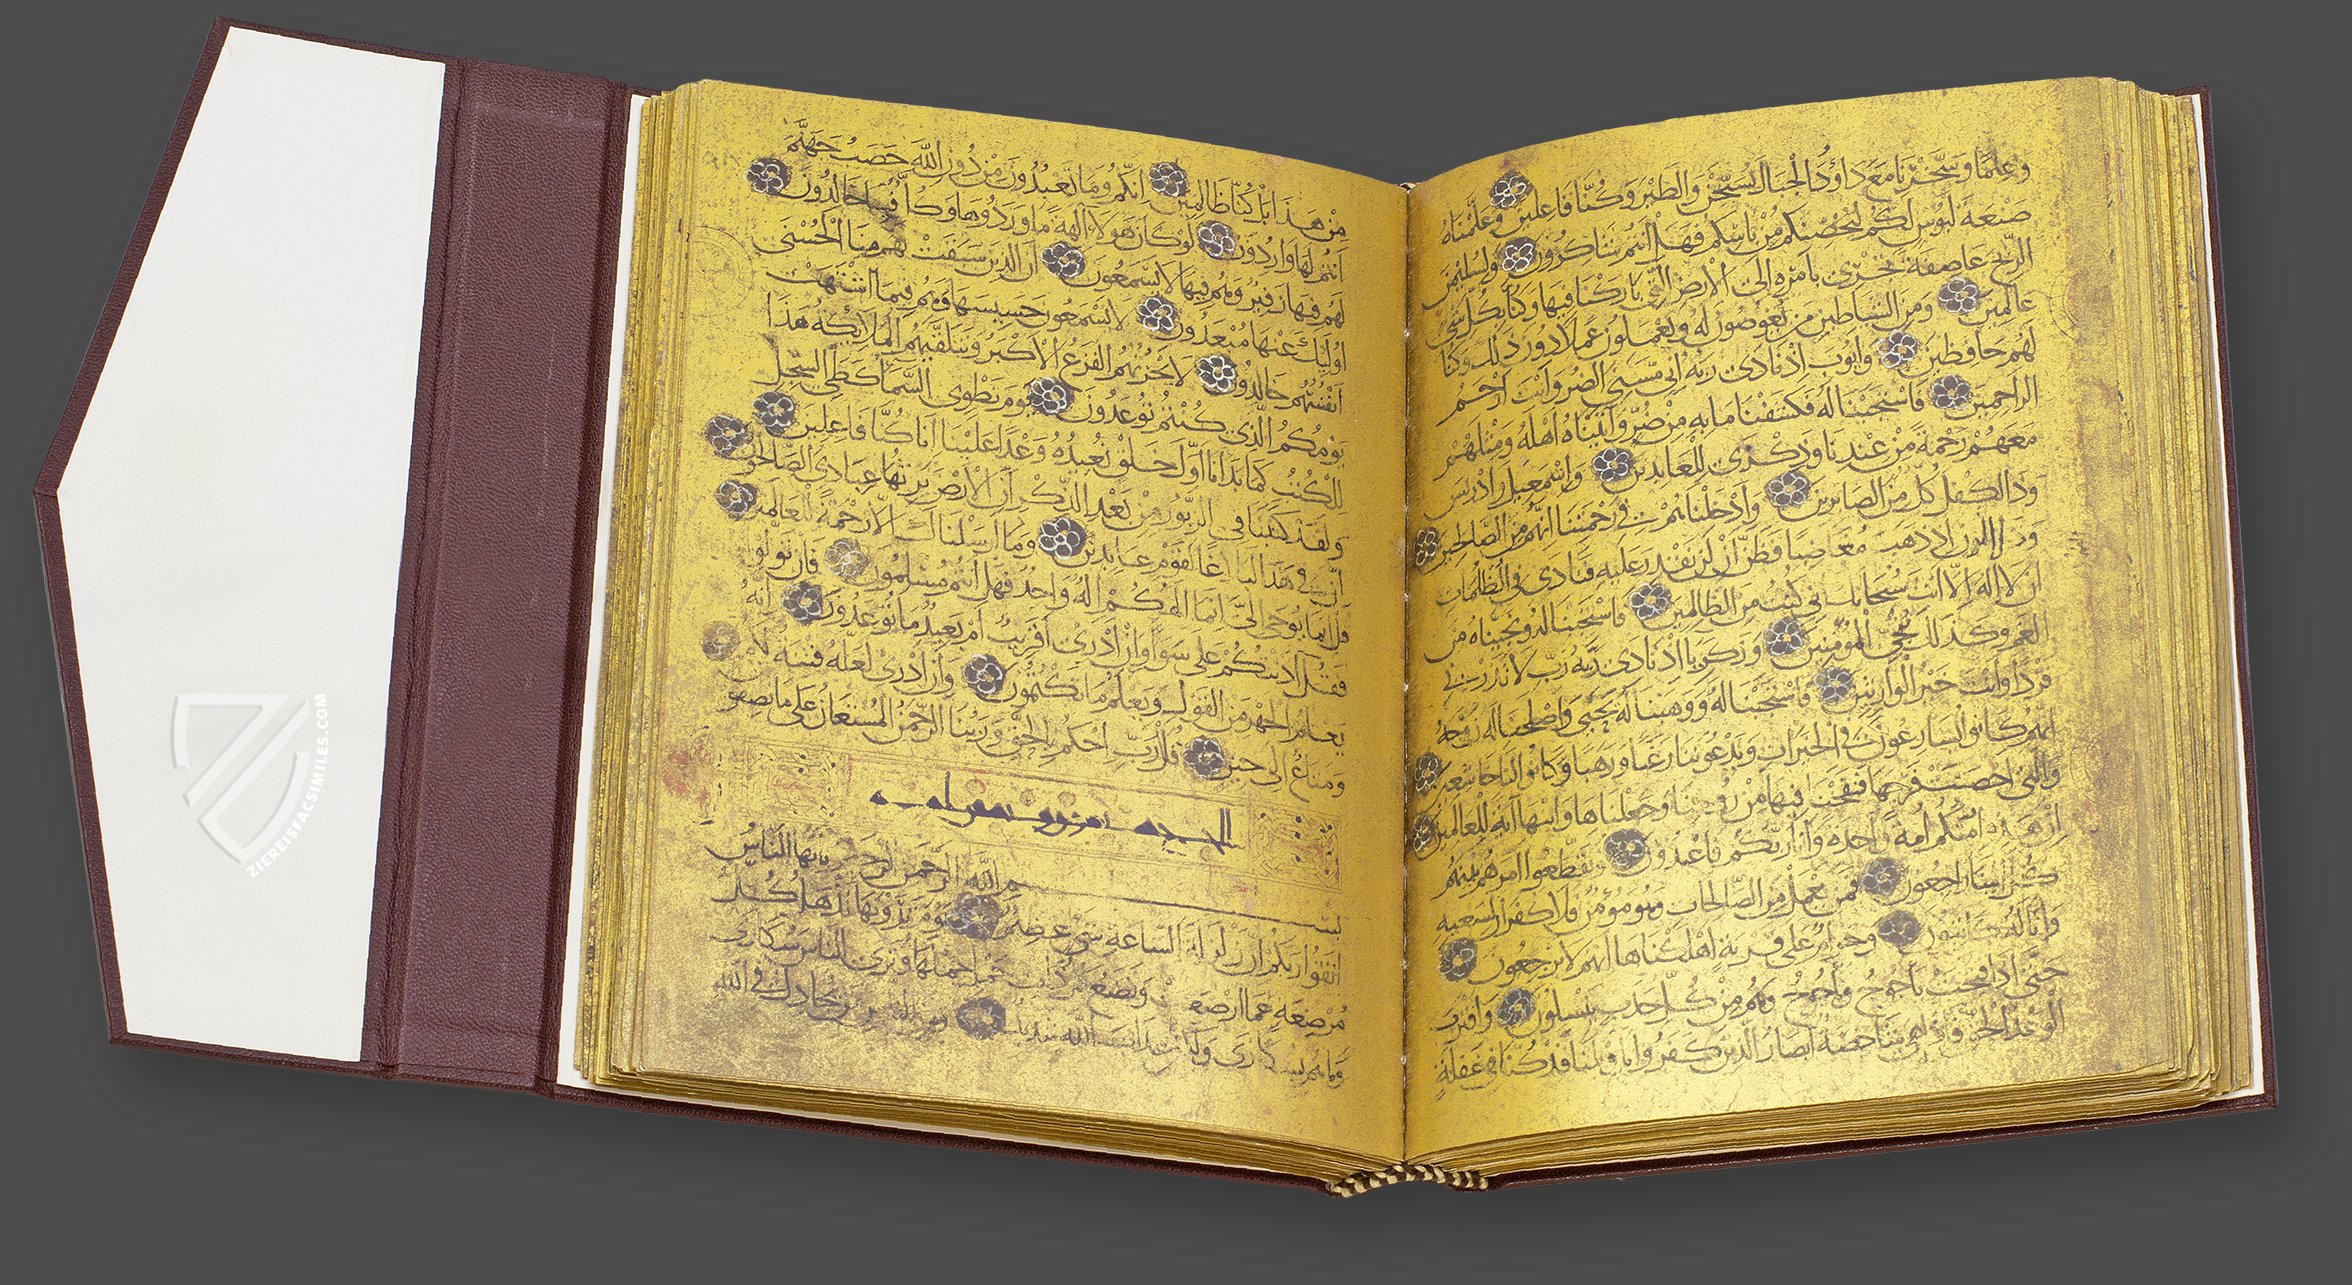 وعلما وسخرنا مع داود الجبال يسبحن والطير وكنا فاعلين وعلمناه
صنعة لبوس لكم لتحصنكم من باسكم فهل انتم شاكرون ولسليمن
الريح عاصفة تجرى بامره الى الارض التى باركنا فيها وكنا بكل شى
عالمين ومن الشياطين من يغوصون له ويعملون عملا دون ذلك وكنا
لهم حافظين وايوب اذ نادى ربه انى مسنى الضر وانت ارحم
الراحمين فاستجبنا له فكشفنا ما به من ضر واتيناه اهله ومثلهم
معهم رحمة من عندنا وذكرى للعابدين واسمعيل وادريس
وذا الكفل كل من الصابرين وادخلناهم فى رحمتنا انهم من الصالحين
وذا النون اذ ذهب مغاضبا فظن ان لن نقدر عليه فنادى فى الظلمات
ان لا اله الا انت سبحانك انى كنت من الظالمين فاستجبنا له ونجيناه من
الغم وكذلك ننجى المؤمنين وزكريا اذ نادى ربه رب لا تذرنى
فردا وانت خير الوارثين فاستجبنا له ووهبنا له يحيى واصلحنا له زوجه
انهم كانوا يسارعون فى الخيرات ويدعوننا رغبا ورهبا وكانوا لنا خاشعين
والتى احصنت فرجها فنفخنا فيها من روحنا وجعلناها وابنها اية للعالمين
ان هذه امتكم امة واحدة وانا ربكم فاعبدون وتقطعوا امرهم بينهم
كل الينا راجعون فمن يعمل من الصالحات وهو مؤمن فلا كفران لسعيه
وانا له كاتبون وحرام على قرية اهلكناها انهم لا يرجعون
حتى اذا فتحت ياجوج وماجوج وهم من كل حدب ينسلون واقترب
الوعد الحق فاذا هى شاخصة ابصار الذين كفروا يا ويلنا قد كنا فى غفلة
من هذا بل كنا ظالمين انكم وما تعبدون من دون الله حصب جهنم
انتم لها واردون لو كان هولاء الهة ما وردوها وكل فيها خالدون
لهم فيها زفير وهم فيها لا يسمعون ان الذين سبقت لهم منا الحسنى
اولئك عنها مبعدون لا يسمعون حسيسها وهم فيما اشتهت
انفسهم خالدون لا يحزنهم الفزع الاكبر وتتلقيهم الملائكة هذا
يومكم الذى كنتم توعدون يوم نطوى السما كطى السجل
للكتب كما بدانا اول خلق نعيده وعدا علينا انا كنا فاعلين
ولقد كتبنا فى الزبور من بعد الذكر ان الارض يرثها عبادى الصالحون
ان فى هذا لبلاغا لقوم عابدين وما ارسلناك الا رحمة للعالمين
قل انما يوحى الى انما الهكم اله واحد فهل انتم مسلمون فان تولوا
فقل اذنتكم على سوا وان ادرى اقريب ام بعيد ما توعدون انه
يعلم الجهر من القول ويعلم ما تكتمون وان ادرى لعله فتنة لكم
ومتاع الى حين قل رب احكم بالحق وربنا الرحمن المستعان على ما تصفون
بسم الله الرحمن الرحيم يايها الناس
اتقوا ربكم ان زلزلة الساعة شى عظيم يوم ترونها تذهل كل
مرضعة عما ارضعت وتضع كل ذات حمل حملها وترى الناس سكارى
وما هم بسكارى ولكن عذاب الله شديد ومن الناس من يجادل فى الله
ZIEREISFACSIMILES.COM